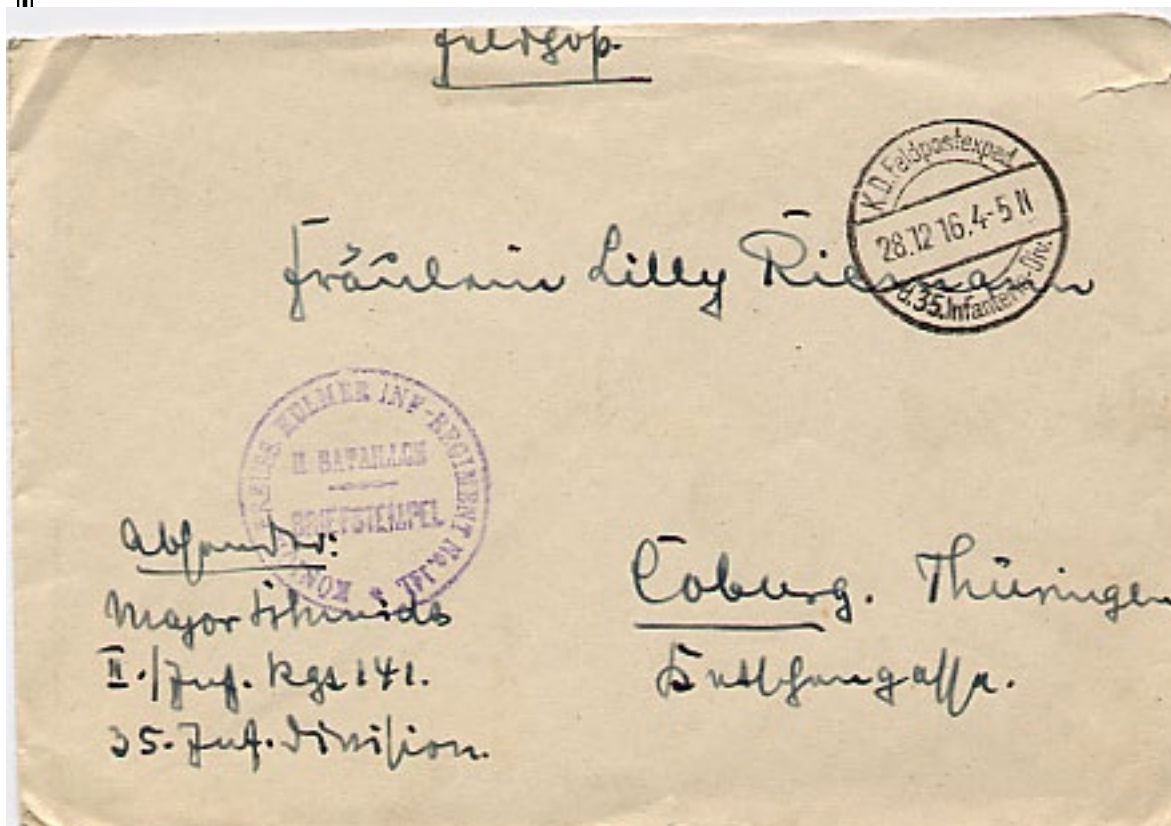 Feldpost.
K.D. Feldpostexped.
28.12.16.4-5 N
d. 35. Infanterie-Div.
Fräulein Lilly Riemann
KÖNIGL. PREUSS. KULMER INF-REGIMENT No. 141.
II. BATAILLON
BRIEFSTEMPEL
Absender:
Major Schmidt
II./Inf. Rgs 141.
35. Inf. Division.
Coburg. Thüringen
Ketschengasse.